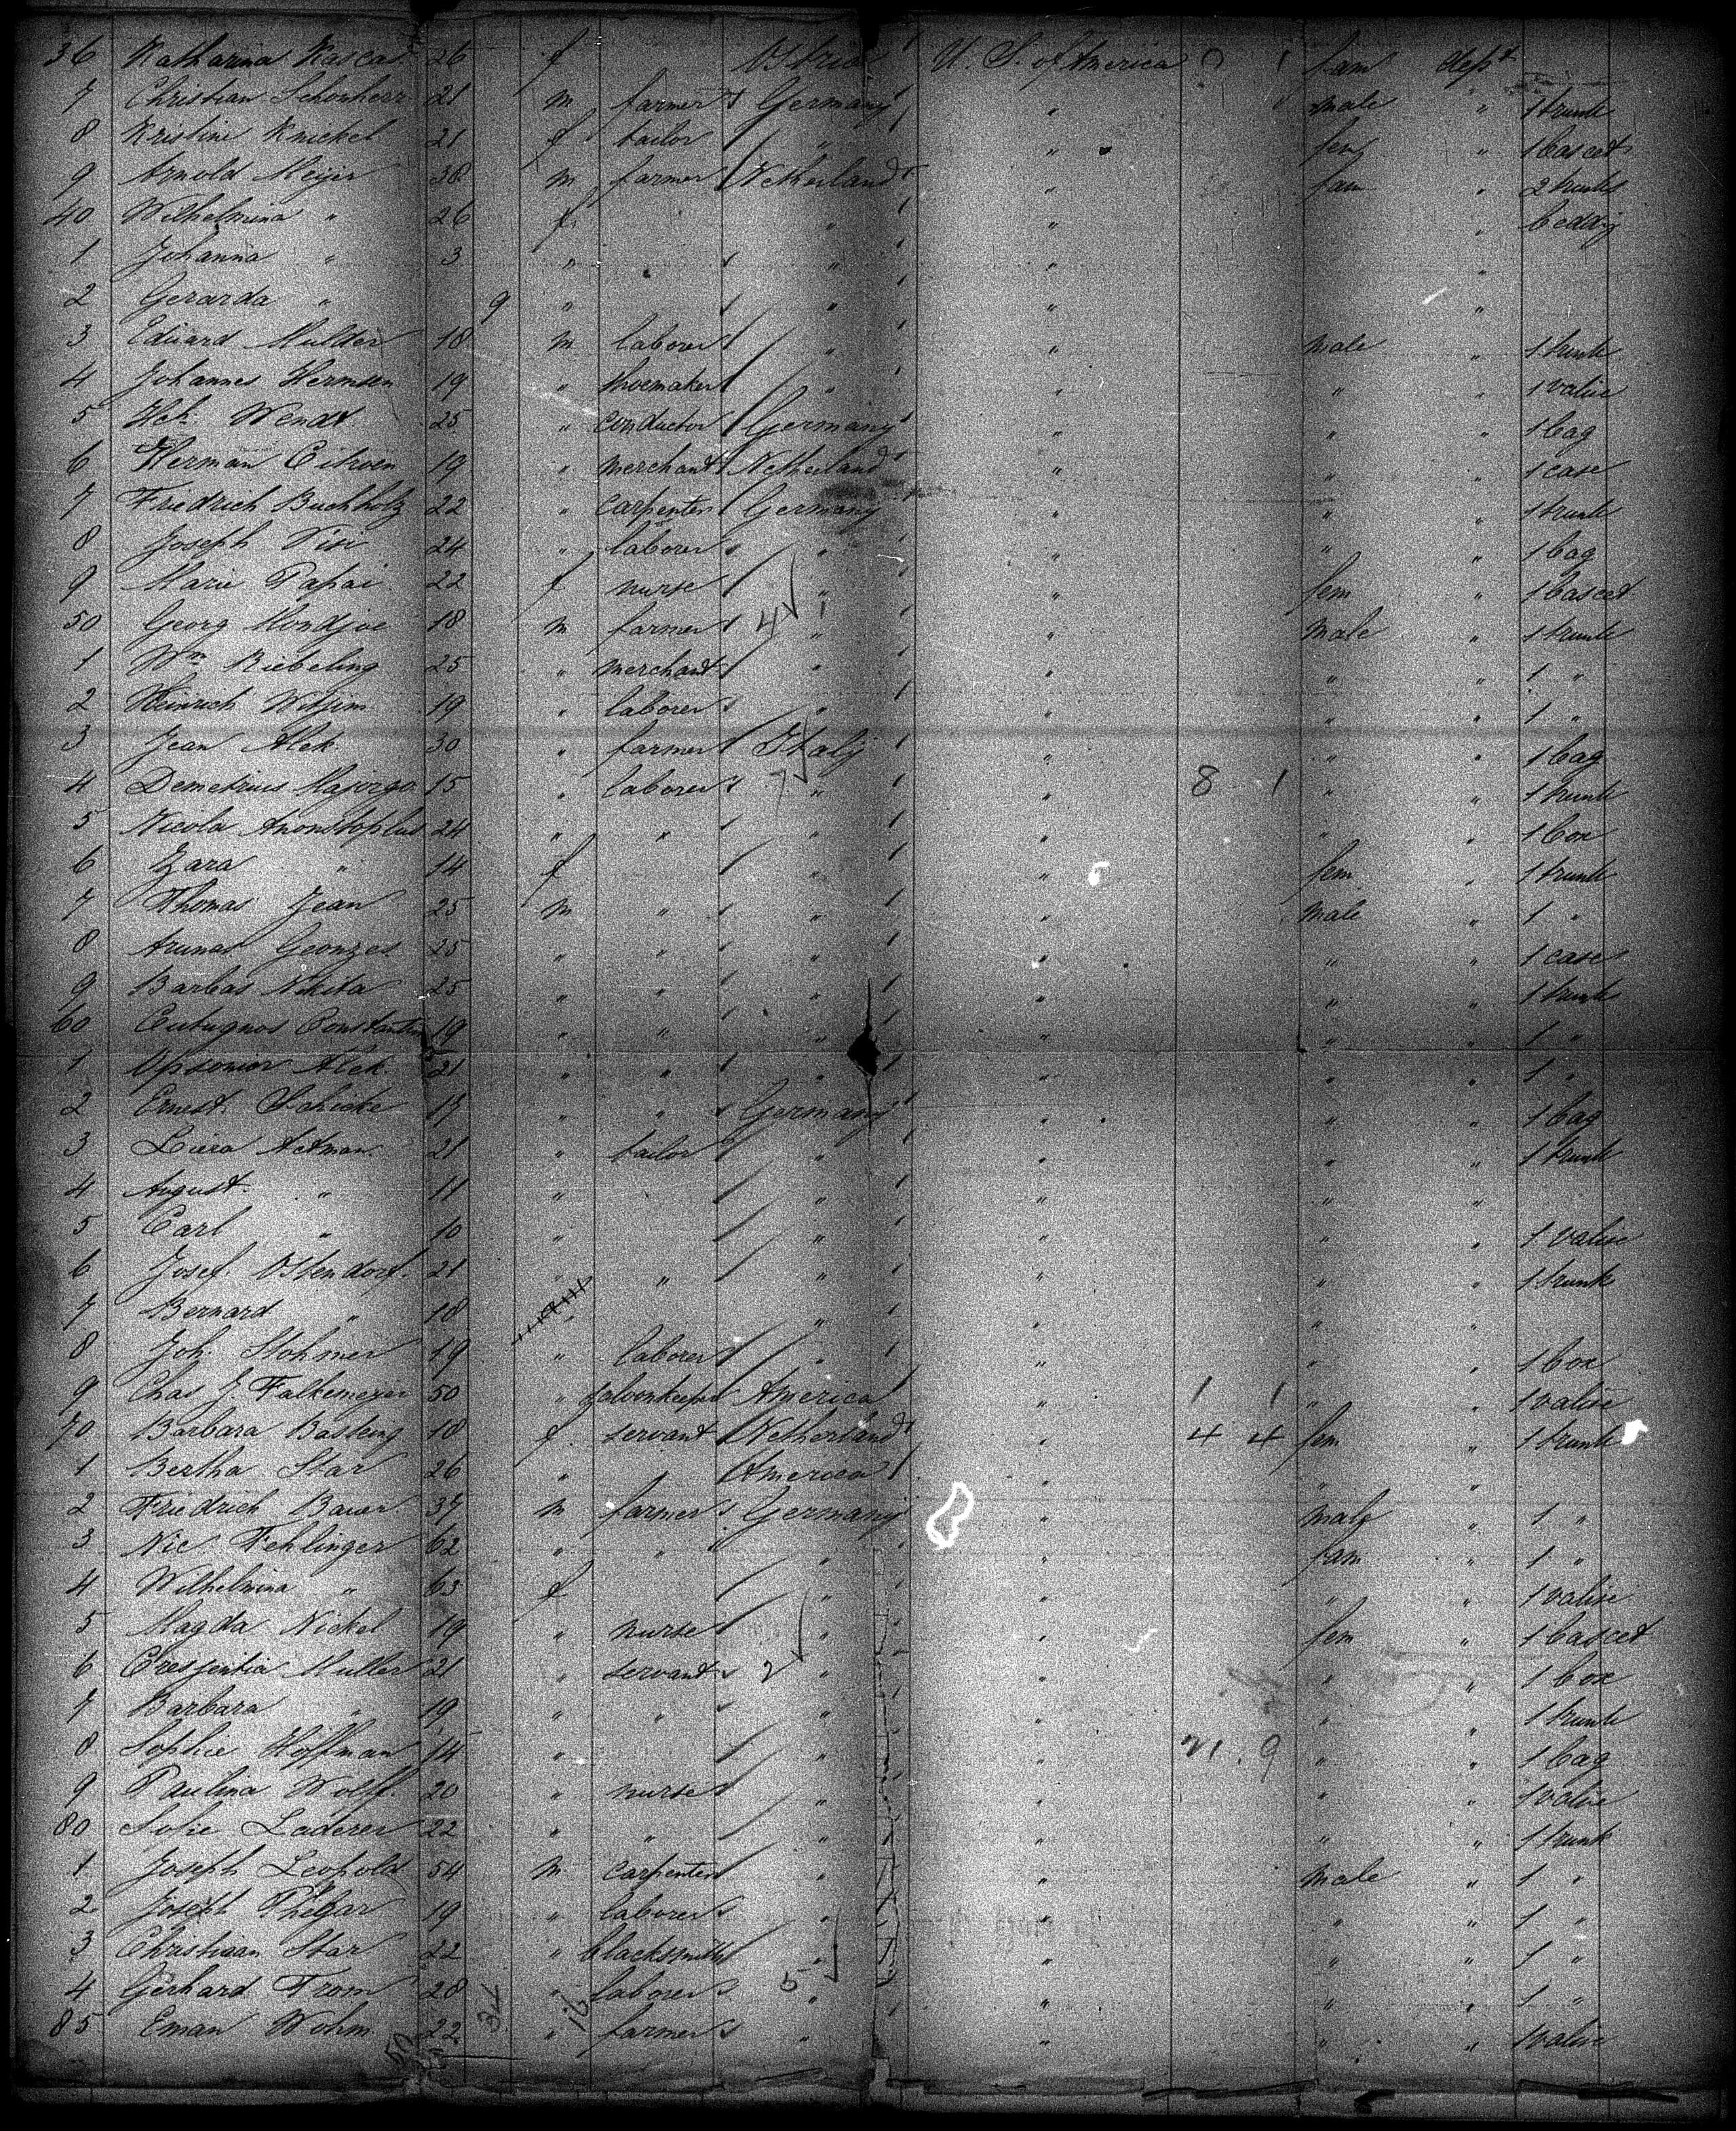 36 Katharina Kascas 26 f Ostria U. S. of America 0 1 fam dept
7 Christian Schonherr 21 m farmer Germany " male " 1 trunk
8 Kristine Knickel 21 f tailor " " fem " 1 bascet
9 Arnold Meijer 38 m farmer Netherland " fam " 2 trunks
40 Wilhelmina " 26 f " " " bedding
1 Johanna " 3 " " " "
2 Gerarda " 9 " " " "
3 Eduard Mulder 18 m laborer " " male " 1 trunk
4 Johannes Hermsen 19 " shoemaker " " " " 1 valise
5 Hch. Wendt 25 " conductor Germany " " " 1 bag
6 Herman Citroen 19 " merchant Netherland " " " 1 case
7 Friedrich Buchholz 22 " carpenter Germany " " " 1 trunk
8 Joseph Visi 24 " laborer " " " " 1 bag
9 Marie Papai 22 f nurse " " fem " 1 bascet
50 Georg Mondjoe 18 m farmer 4 " " male " 1 trunk
1 Wm Riebeling 25 " merchant " " " " 1 "
2 Heinrich Witjim 19 " laborer " " " " 1 "
3 Jean Alek 30 " farmer Italy " " " 1 bag
4 Demetrius Majorgo 15 " laborer 7 " " 8 1 " " 1 trunk
5 Nicola 24 " " " " " " 1 box
6 Zara " 14 f " " fem " 1 trunk
7 Thomas Jean 25 m " " " male " 1 "
8 Arunas Geonzes 25 " " " " " " 1 case
9 Barbas Nikita 25 " " " " " " 1 trunk
60 Cutugnos Constantin 19 " " " " " " 1 "
1 Alek 21 " " " " " " 1 "
2 Ernest Schicke 17 " " Germany " " " 1 bag
3 Actman 21 " tailor " " " " 1 trunk
4 August " 11 " " " " "
5 Carl " 10 " " " " " 1 valise
6 Josef Ostendorf 21 " " " " " " 1 trunk
7 Bernard " 18 " " " " "
8 Joh. Stohmer 19 " laborer " " " " 1 box
9 Chas J. Falkemeyer 50 " saloonkeeper America " 1 1 " " 1 valise
70 Barbara Basting 18 f servant Netherland " 4 4 fem " 1 trunk
1 Bertha Star 26 " America " " "
2 Friedrich Bauer 37 m farmer Germany " male " 1 "
3 Nic Fehlinger 62 " " " " fam " 1 "
4 Wilhelmina " 63 f " " " " 1 valise
5 Magda Nickel 19 " nurse " " fem " 1 bascet
6 Cresjentia Muller 21 " servant 2 " " " " 1 box
7 Barbara " 19 " " " " " " 1 trunk
8 Sophie Hoffman 14 " " " 21 9 " " 1 bag
9 Paulina Wolff 20 " nurse " " " " 1 valise
80 Sofie Laderer 22 " " " " " " 1 trunk
1 Joseph Leopold 54 m carpenter " " male " 1 "
2 Joseph 19 " laborer " " " " 1 "
3 Christiaan Star 22 " blacksmith " " " " 1 "
4 Gerhard From 28 " laborer 5 " " " " 1 "
85 Eman Wohm 22 " farmer " " " " 1 valise
50 34 16